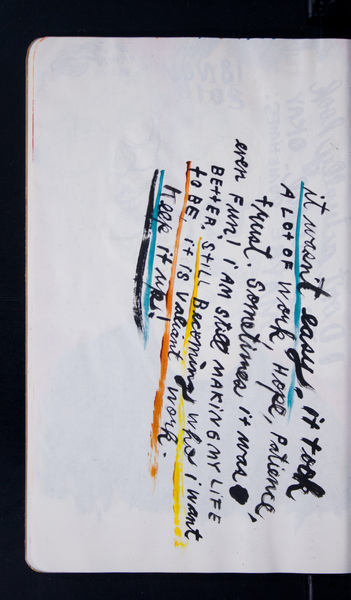 it wasn't easy, it took
A LOT OF WORK, HOPE, PATIENCE,
trust. Sometimes it was
even FUN! I AM STILL MAKING MY LIFE
BETTER. STILL BECOMING who i want
to BE. it is valiant work.
keep it up!